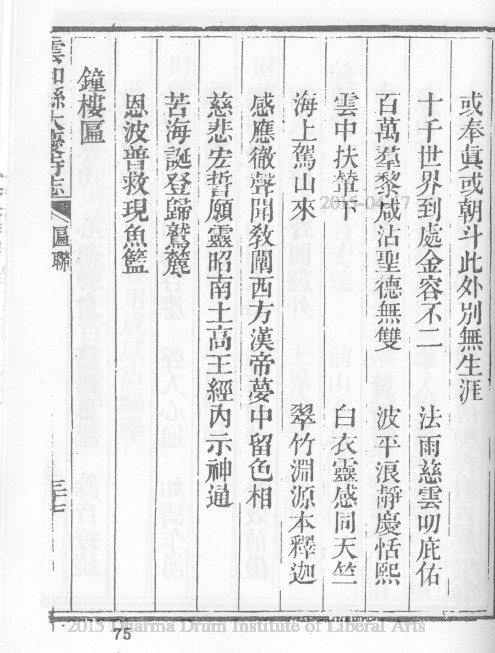 或奉眞或朝斗此外別無生涯
十千世界到處金容不二　法雨慈雲叨庇佑
百萬羣黎咸沾聖德無雙　波平浪靜慶恬熙
雲中扶筆下　白衣靈感同天竺
海上駕山來　翠竹淵源本釋迦
感應徹聲聞敎闡西方漢帝夢中留色相
慈悲宏誓願靈昭南土高王經內示神通
苦海誕登歸鷲麓
恩波普救現魚籃
鐘樓匾
雲和縣大慶寺志
匾聯
三七
2015-04-17
·2015 Dharma Drum Institute of Liberal Arts
75